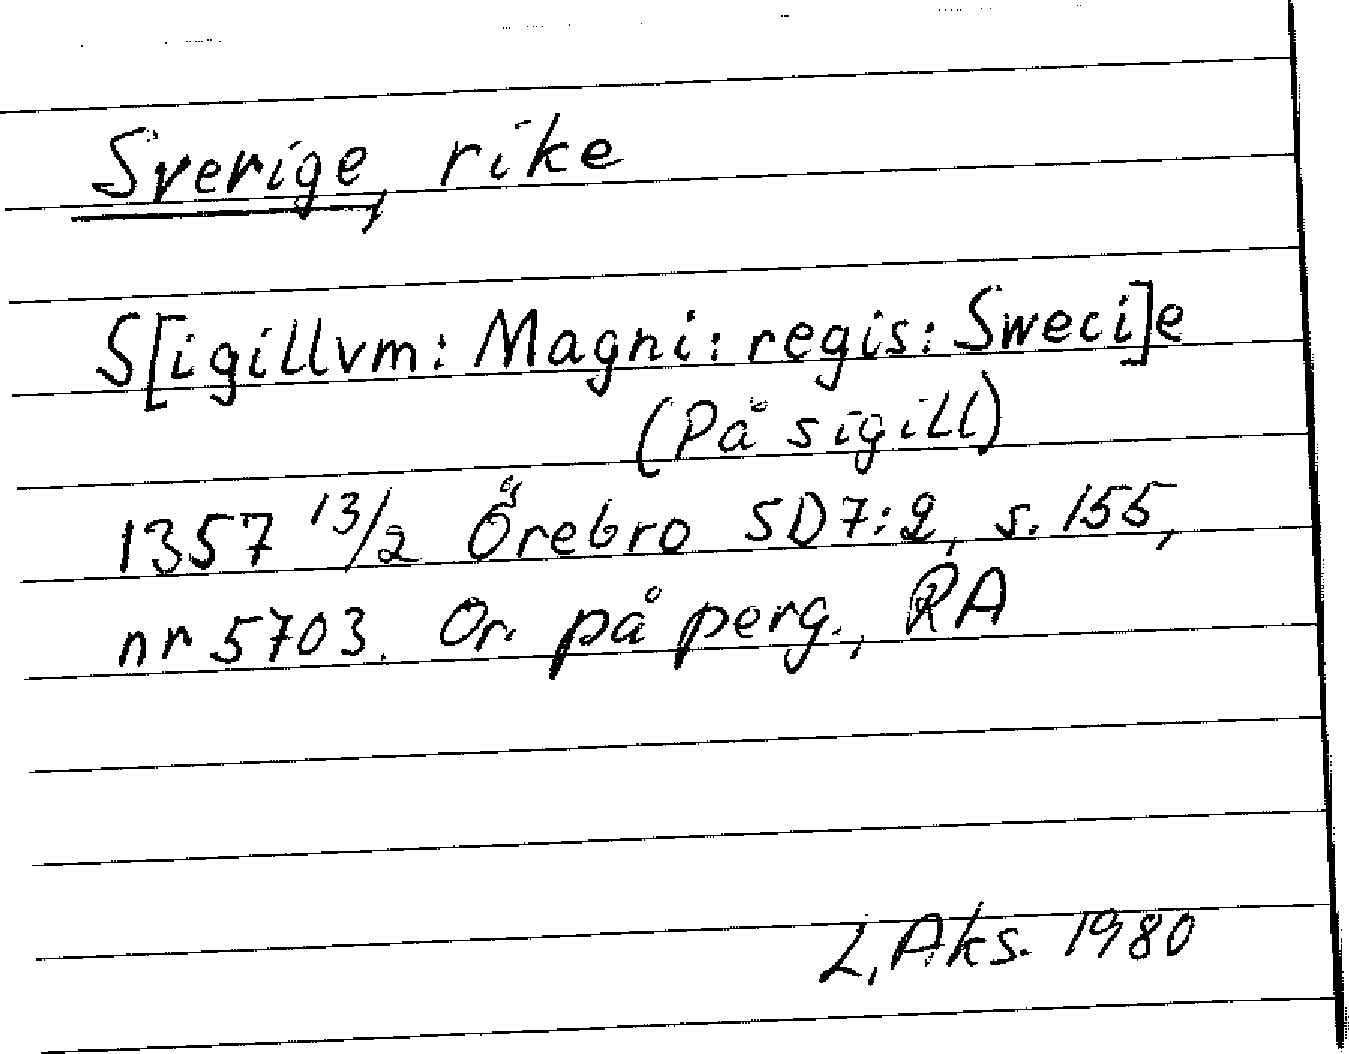 Sverige, rike
S[igillvm: Magni: regis: Sweci]e
(På sigill)
1357 13/2 Örebro SD7:2, s. 155,
nr 5703. Or. på perg., RA
L. Aks. 1980